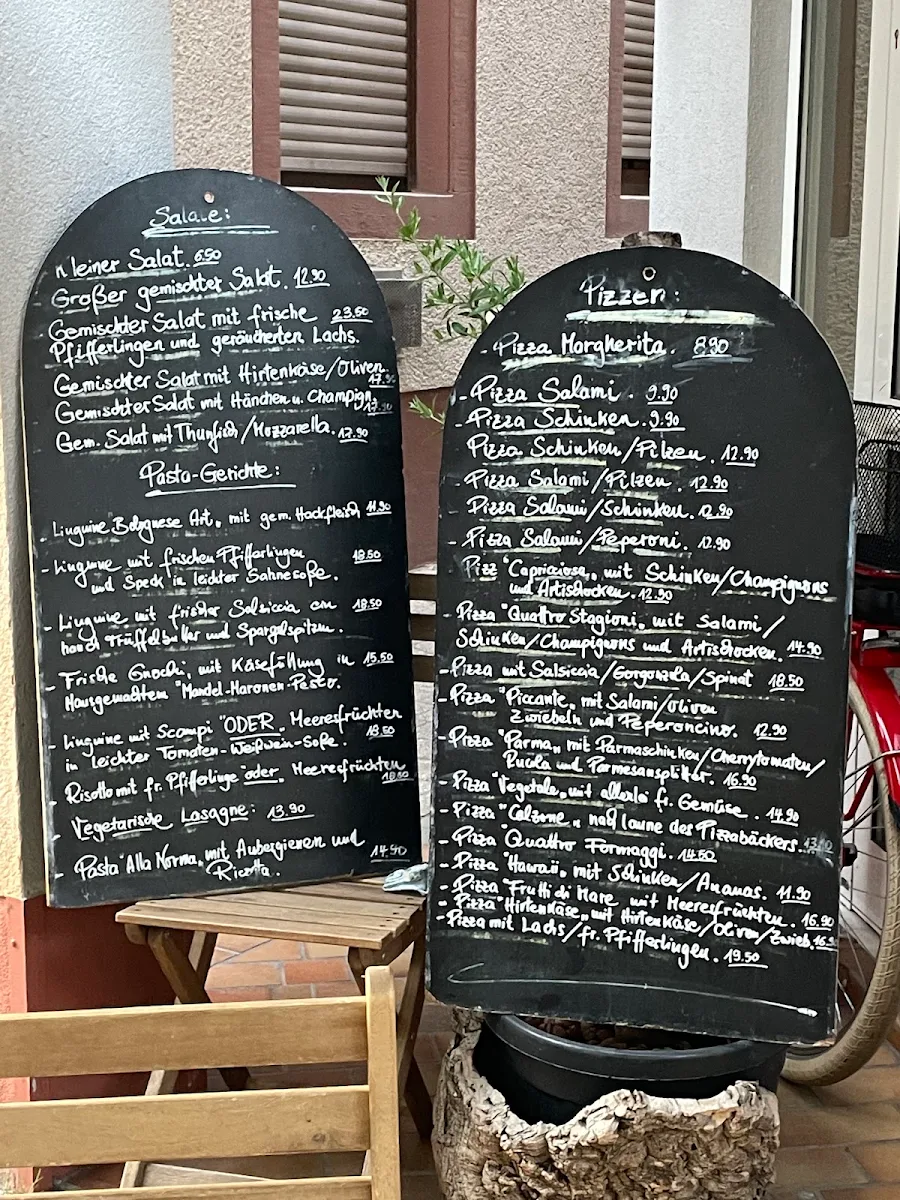 Salate:
Kleiner Salat. 6.90
Großer gemischter Salat. 12.90
Gemischter Salat mit frische 23,50
Pfifferlingen und geräucherten Lachs.
Gemischter Salat mit Hirtenkäse/Oliven.
17.90
Gemischter Salat mit Hänchen u. Champign.
17.90
Gem. Salat mit Thunfisch/Mozzarella. 17.90
Pasta-Gerichte:
Linguine Bolognese Art, mit gem. Hackfleisch
- Linguine mit frischen Pfifferlingen 18.50
und Speck in leichter Sahnesoße.
- Linguine mit frischer Salsiccia an 18.50
hauch Trüffelbutter und Spargelspitzen.
- Frische Gnocki, mit Käsefüllung in 15,50
Hausgemachten "Mandel-Maronen-Pesto.
- Linguine mit Scampi "ODER" Meeresfrüchten
in leichter Tomaten-Weißwein-Soße. 18.50
- Risotto mit fr. Pfifferlinge "oder" Meeresfrüchten
18.50
- Vegetarische Lasagne: 13.90
- Pasta "Alla Norma, mit Auberginen und 14.90
Ricotta.
Pizzen:
- Pizza Margherita. 8.90
- Pizza Salami. 9.90
- Pizza Schinken. 9.90
Pizza Schinken/Pilzen. 12.90
- Pizza Salami/Pilzen. 12.90
Pizza Salami/Schinken. 12.90
- Pizza Salami/Peperoni. 12.90
Pizz "Capricciosa" mit Schinken/Champignons
und Artischocken. 12.90
- Pizza "Quattro Stagioni" mit Salami/
Schinken/Champignons und Artischocken. 14.90
Pizza mit Salsiccia/Gorgonzola/Spinat 18.50
- Pizza "Piccante" mit Salami/Oliven
Zwiebeln und Peperoncino. 12.90
- Pizza "Parma" mit Parmaschinken/Cherrytomaten/
Rucola und Parmesansplitter. 16.90
Pizza "Vegetale" mit allerlei fr. Gemüse. 14.90
Pizza "Calzone" nach laune der Pizzabäckers.
- Pizza "Quattro Formaggi. 14.50
- Pizza "Hawaii" mit Schinken/Ananas. 11.90
- Pizza "Frutti di Mare mit Meeresfrüchten. 16.90
- Pizza "Hirtenkäse" mit Hirtenkäse/Oliven/Zwieb.
- Pizza mit Lachs/fr. Pfifferlingen. 19.50